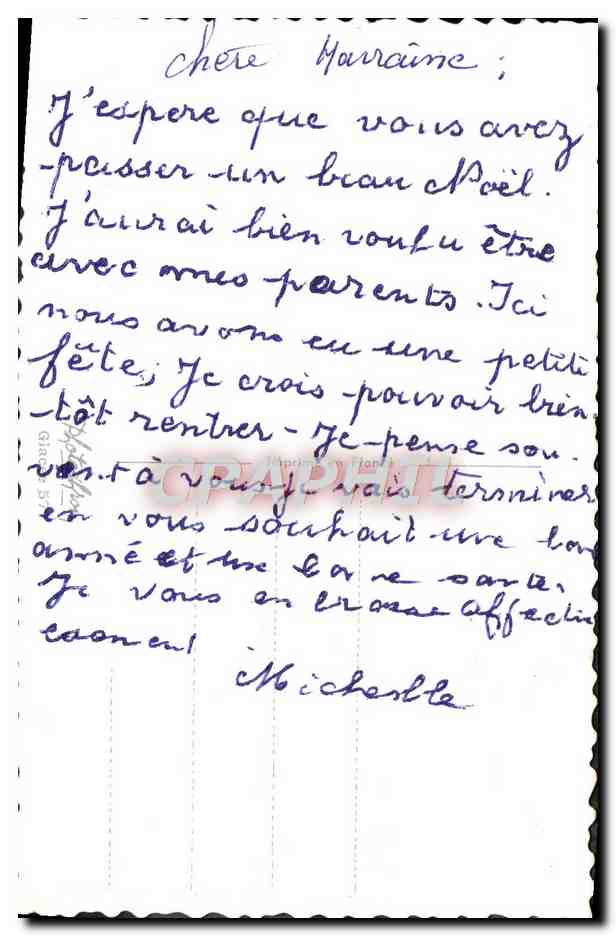 chère Marraine ;
J'espere que vous avez
passer un beau Noël.
J'aurai bien voulu être
avec mes parents. Ici
nous avons eu une petite
fête, Je crois pouvoir bien
-tôt rentrer - Je pense sou-
vent à vous je vais terminer
en vous souhait une bone
anné et une bone sante.
Je vous embrasse affectu
eusement
Michelle
Imprimé en France
CPAPHIL
Girobe 57